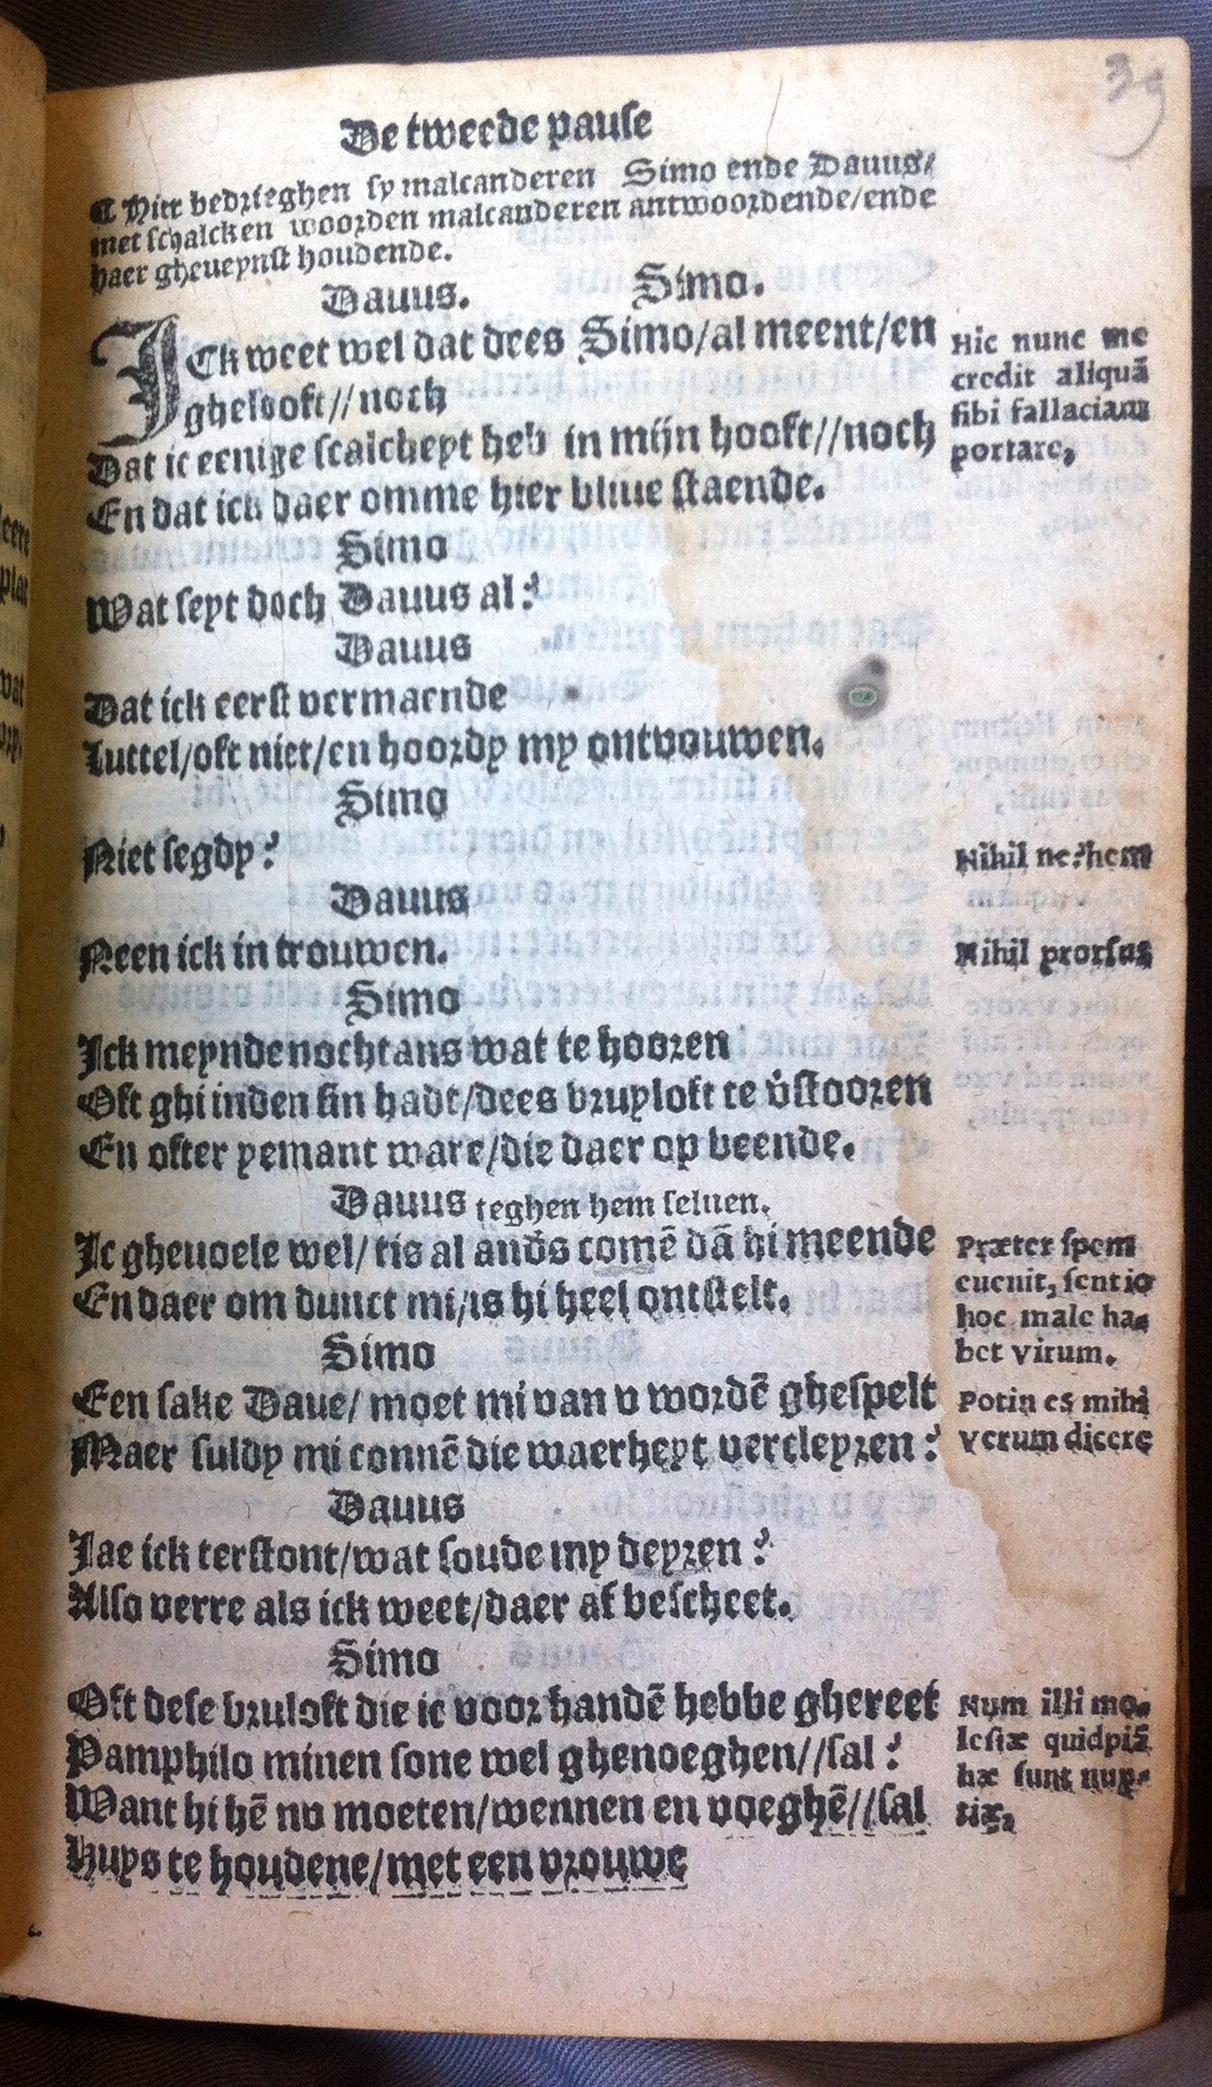 39
De tweede pause
¶ Hier bedrieghen sy malcanderen Simo ende Dauus/
met schalcken woorden malcanderen antwoordende/ende
haer gheueynst houdende.
Dauus. Simo.
ICk weet wel dat dees Simo/al meent/en
ghelooft//noch
Dat ic eenige scalcheyt heb in mijn hooft//noch
En dat ick daer omme hier bliue staende.
Simo
Wat seyt doch Dauus al?
Dauus
Dat ick eerst vermaende
Luttel/oft niet/en hoordy my ontvouwen.
Simo
Niet segdy?
Dauus
Neen ick in trouwen.
Simo
Ick meynde nochtans wat te hooren
Oft ghi inden sin hadt/dees bruyloft te v̛stooren
En ofter yemant ware/die daer op beende.
Dauus teghen hem seluen.
Ic gheuoele wel/tis al and̛s comē dā hi meende
En daer om dunct mi/is hi heel ontstelt.
Simo
Een sake Daue/ moet mi van v wordē ghespelt
Maer suldy mi connē die waerheyt vercleyren?
Dauus
Jae ick terstont/wat soude my deyren?
Also verre als ick weet/daer af bescheet.
Simo
Oft dese bruloft die ic voor handē hebbe ghereet
Pamphilo minen sone wel ghenoeghen//sal?
Want hi hē nv moeten/wennen en voeghē//sal
Huys te houdene/met een vrouwe
Hic nunc me
credit aliquā
sibi fallaciam
portare,
Nihil ne?hem
Nihil prorsus
Præter spem
euenit, sentio
hoc male ha-
bet virum.
Potin es mihi
verum dicere
Num illi mo-
lestæ quidpiā
hæ sunt nup-
tiæ,